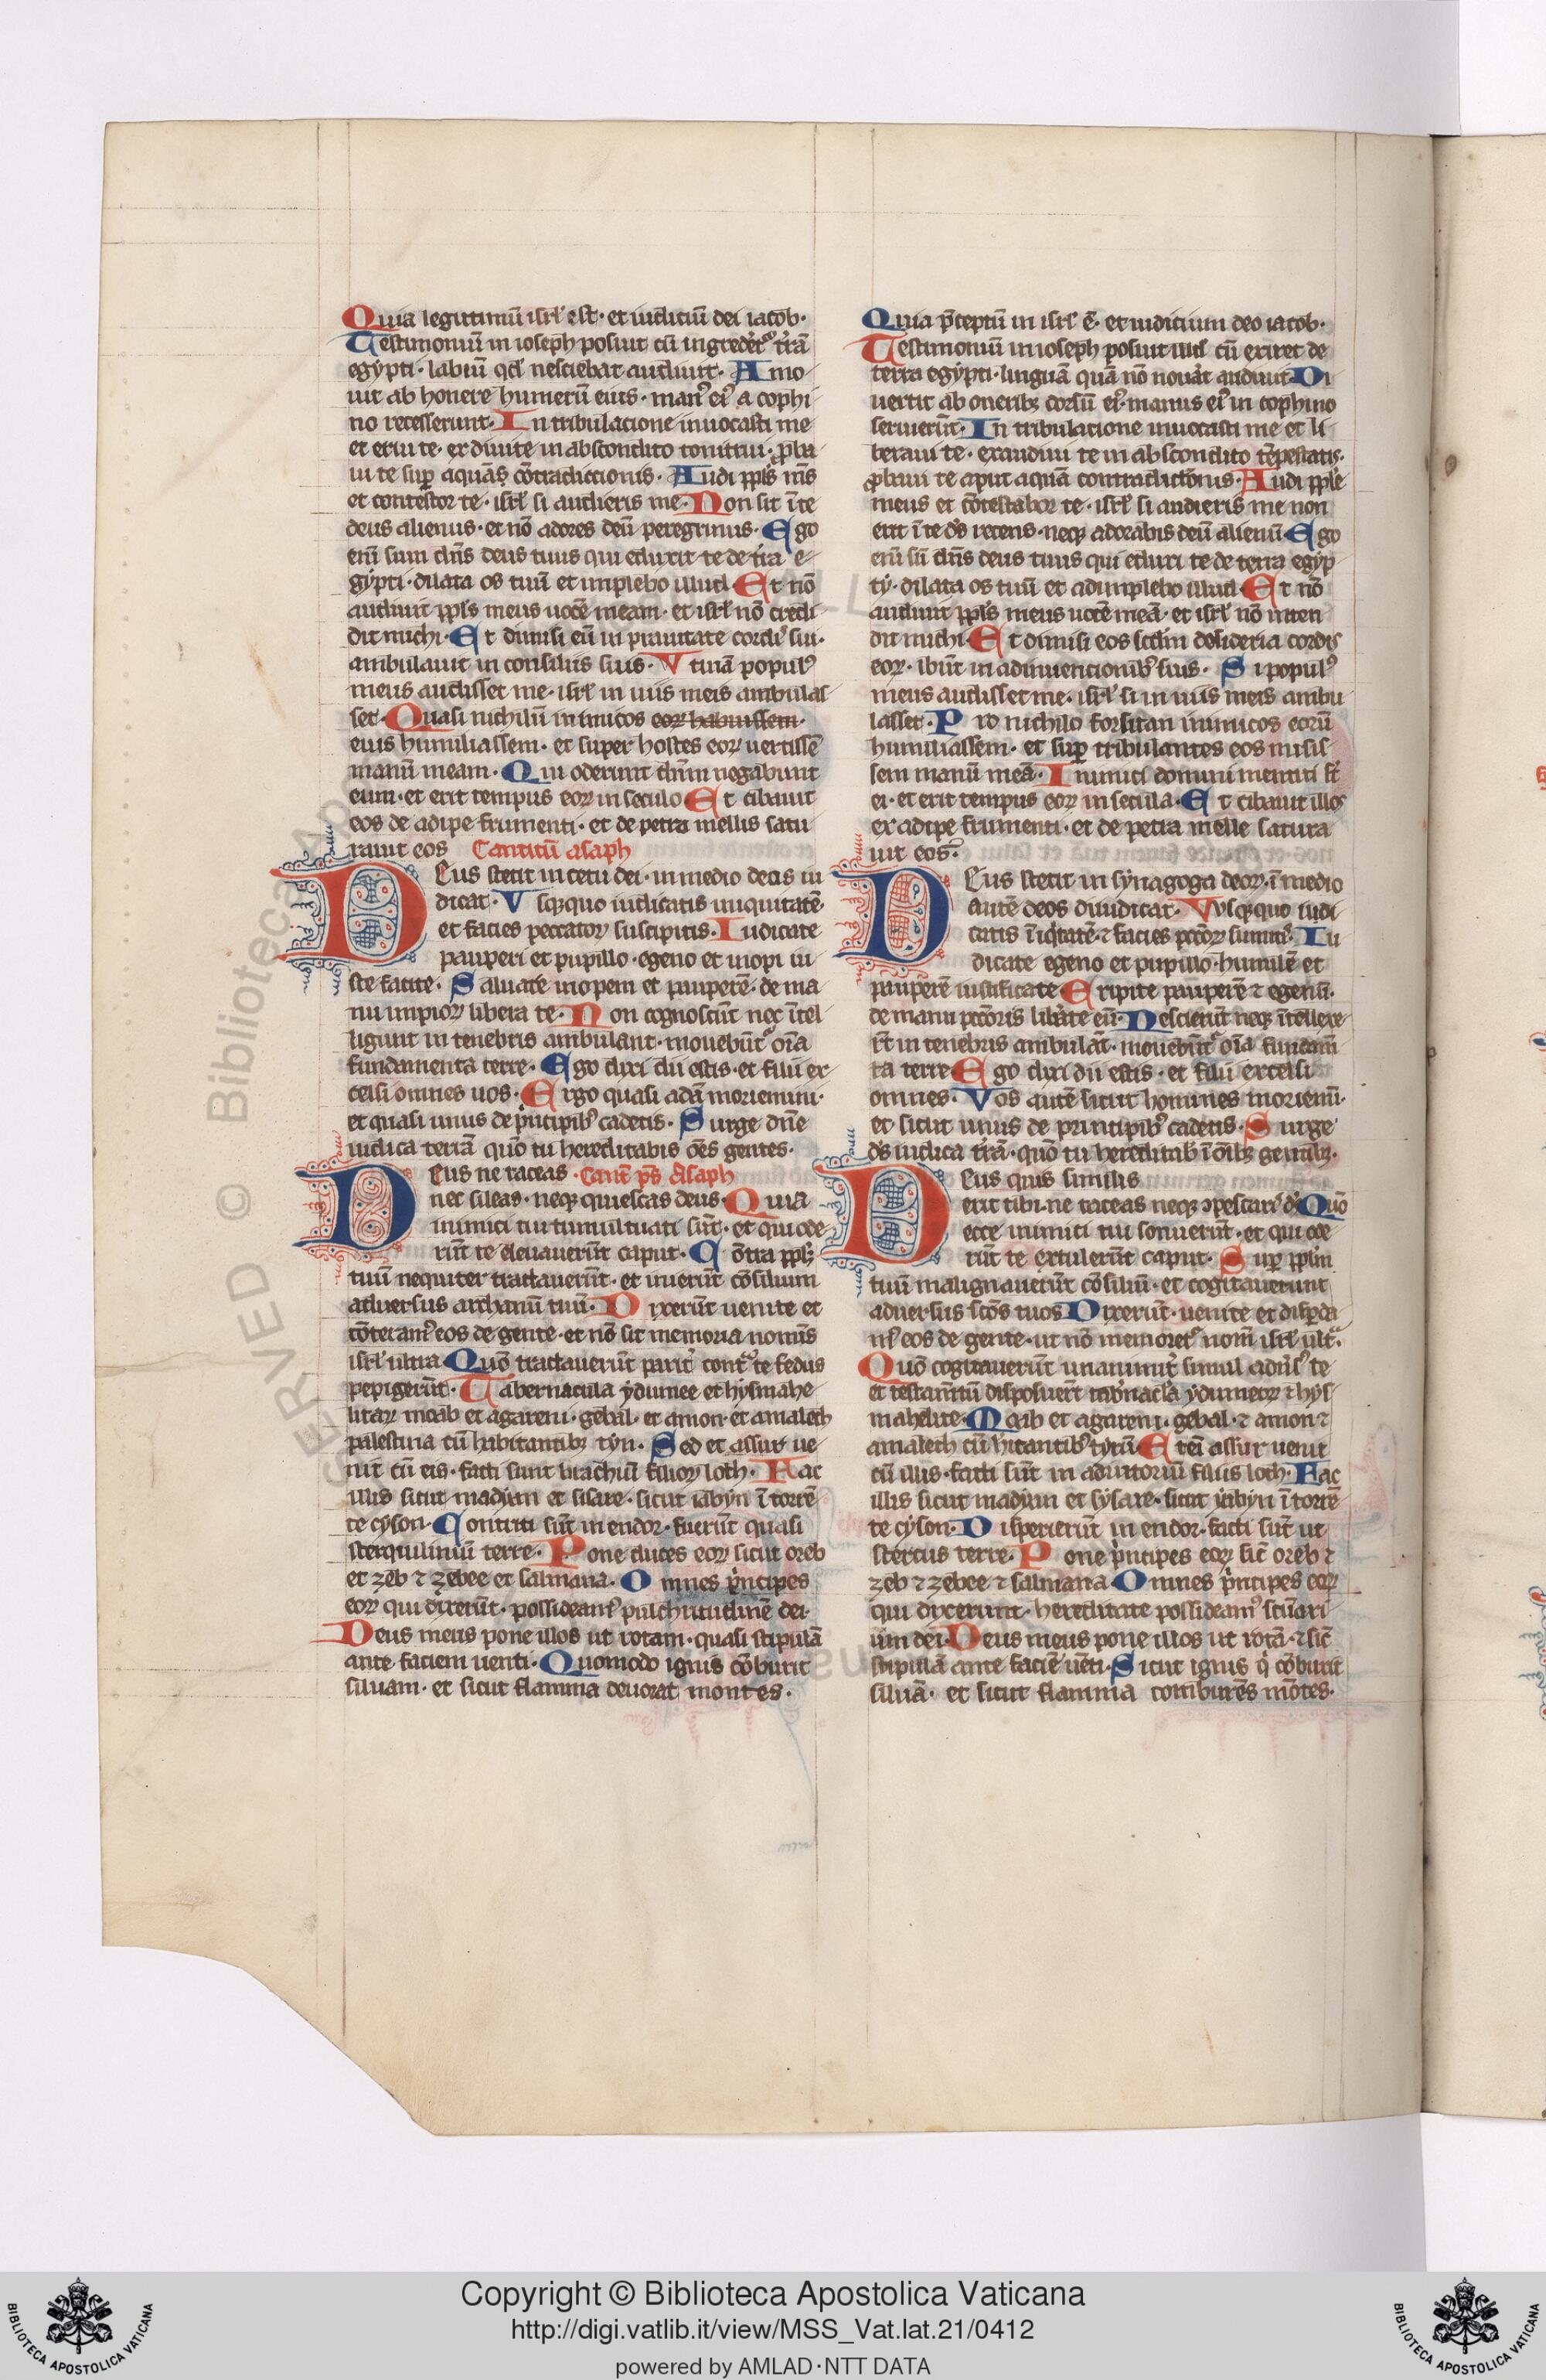 Quia legittimũ isrł est · et iudiciũ dei iacob ·
Testimoniũ in ioseph posuit cũ ingredẽt᷑ trãm
egypti · labiũ qđ nesciebat audiuit · Amo
uit ab honere humerũ eius · manꝰ eiꝰ a cophi
no recesserunt · In tribulacione inuocasti me
et erui te · exdiuite in abscondito tonitrui · ꝓba
ui te suꝑ aquas cõtradictionis · Audi ppłs mẽs
et contestor te · isrł si audieris me · Non sit ĩ te
deus alienus · et nõ adores deũ peregrinus · Ego
enĩ sum dñs deus tuus qui eduxit te de tr̃a e
gypti · dilata os tuũ et implebo illud · Et nõ
audiuit ppłs meus uocẽ meam · et isrł nõ credi
dit michi · Et dimisi eũ in prauitate cordiꝰ sui ·
ambulauit in consiliis suis · Vtinã populꝰ
meus audisset me · isrł in uiis meis ambulas
set · Quasi nichilũ inimicos eoꝝ habuissem ·
eius humiliassem · et super hostes eoꝝ uertissẽ
manũ meam · Qui oderunt dñm negabunt
eum · et erit tempus eoꝝ in seculo Et cibauit
eos de adipe frumenti · et de petra mellis satu
rauit eos Canticũ asaph
Deus stetit in cetu dei · in medio deus iu
dicat · Vsqꝫquo iudicatis iniquitatẽ
et facies peccatoꝝ suscipitis · Iudicate
pauperi et pupillo · egeno et inopi iu
ste facite · Saluate inopem et pauperẽ · de ma
nu impioꝝ libera te · Non cognoscũt nec ĩtel
ligunt in tenebris ambulant · mouebũt᷑ oĩa
fundamenta terre · Ego dixi dii estis · et filii ex
celsi omnes uos · Ergo quasi adã moriemini ·
et quasi unus de pⁱncipibꝰ cadetis · Surge dñe
iudica terrã quõ tu hereditabis oẽs gentes ·
Deus ne taceas · Cant̃ ps̃ Asaph
nec sileas · neqꝫ quiescas deus · Quia
inimici tui tumultuati sũt · et qui ode
rũt te eleuauerũt caput · Cõtra ppłꝫ
tuũ nequiter tractauerũt · et inierũt cõsilium
aduersus archanũ tuũ · Dixerũt uenite et
cõteramꝰ eos de gente · et nõ sit memoria nomĩs
isrł ultra Quõ tractauerũt parit᷑ contᵃ te fedus
pepigerũt · Tabernacula ydumee et hysmahe
litaꝝ moab et agareni · gebal · et amon · et amalech
palestina cũ habitantibꝫ tyri · Sed et assur ue
nit cũ eis · facti sunt brachiũ filioꝝ loth · Fac
illis sicut madyan et sisare · sicut iabyn ĩ torrẽ
te cyson · Contriti sũt in endor · fuerũt quasi
sterquiliniũ terre · Pone duces eoꝝ sicut oreb
et zeb ⁊ zebee et salmana · Omnes pⁱncipes
eoꝝ qui dixerũt · possideamꝰ pulchritudinẽ dei ·
Deus meus pone illos ut rotam · quasi stipulã
ante faciem uenti · Quomodo ignis cõburit
siluam · et sicut flamma deuorat montes ·
Quia p̃ceptũ in isrł ẽ · et iudicium deo iacob ·
Testimoniũ in ioseph posuit illud cũ exiret de
terra egypti · linguã quã nõ nouãt audiuit Di
uertit ab oneribꝫ dorsũ eiꝰ · manus eiꝰ in cophino
seruierũt · In tribulacione inuocasti me et li
beraui te · exaudiui te in abscondito tẽpestatis ·
ꝓbaui te aput aquã contradictõnis · Audi pple
meus et cõtestabor te · isrł si audieris me non
erit ĩ te dˢ recens · neqꝫ adorabis deũ alienũ Ego
enĩ sũ dñs deus tuus qui eduxi te de terra egyp
ti · dilata os tuũ et adimplebo illud · Et nõ
audiuit ppłs meus uocẽ meã · et isrł nõ inten
dit michi · Et dimisi eos scđm desideria cordis
eoꝝ · ibũt in adinuencionibꝰ suis · Si populꝰ
meus audisset me · isrł si in uiis meis ambu
lasset · Pro nichilo forsitan inimicos eorũ
humiliassem · et suꝑ tribulantes eos misis
sem manũ meã · Inimici domini mentiti sũt
ei · et erit tempus eoꝝ in secula · Et cibauit illos
ex adipe frumenti · et de petra melle satura
uit eos ·
Deus stetit in synagoga deoꝝ · ĩ medio
autẽ deos diiudicat · Vsqꝫquo iudi
catis ĩiqⁱtatẽ · ⁊ facies pctõꝝ sumitꝭ · Iu
dicate egeno et pupillo · humilẽ et
pauperẽ iustificate Eripite pauperẽ ⁊ egenũ ·
de manu pctõris libᷓate eũ · Nescierũt neqꝫ ĩtellexe
rũt in tenebris ambulãt · mouebũt᷑ oĩa fundam̃
ta terre Ego dixi dii estis · et filii excelsi
omnes · Vos autẽ sicut homines moriemĩ ·
et sicut unus de principibꝰ cadetis · Surge
dˢ iudica tr̃ã · quõ tu hereditabꝭ ĩ oĩbꝫ gentibꝫ ·
Deus quis similis
erit tibi · ne taceas neqꝫ opescarꝭ dˢ Quõ
ecce inimici tui sonuerũt · et qui ode
rũt te extulerũt caput · Suꝑ ppłm
tuũ malignauerũt cõsiliũ · et cogitauerunt
aduersus sc̃os tuos Dixerũt · uenite et disꝑda
mꝰ eos de gente · ut nõ memoret᷑ nom̃ isrł ult᷑ ·
Quõ cogitauerũt unanimit᷑ simul adu̾sꝰ te
et testam̃tũ disposuerũt tab̾nacl̃a ydumeoꝝ ⁊ hys
mahelite · Moab et agareni · gebal · ⁊ amon ⁊
amalech cũ h̾itantibꝰ tyrũ · Etẽi assur uenit
cũ illis · facti sũt in adiutoriũ filiis loth · Fac
illis sicut madyan et sysare · sicut yabyn ĩ torrẽ
te cyson · Disperierũt in endor · facti sũt ut
stercus terre · Pone pⁱncipes eoꝝ sic̃ oreb ⁊
zeb ⁊ zebee ⁊ salmana Omnes pⁱncipes eoꝝ
qui dixerunt · hereditate possideamꝰ sc̃uari
um dei · Deus meus pone illos ut rotã · ⁊ sic̃
stipulã ante faciẽ uẽti · Sicut ignis qⁱ cõburit
siluã · et sicut flamma comburẽs mõtes ·
Copyright © Biblioteca Apostolica Vaticana
http://digi.vatlib.it/view/MSS_Vat.lat.21/0412
powered by AMLAD·NTT DATA
BIBLIOTECA APOSTOLICA VATICANA
BIBLIOTECA APOSTOLICA VATICANA